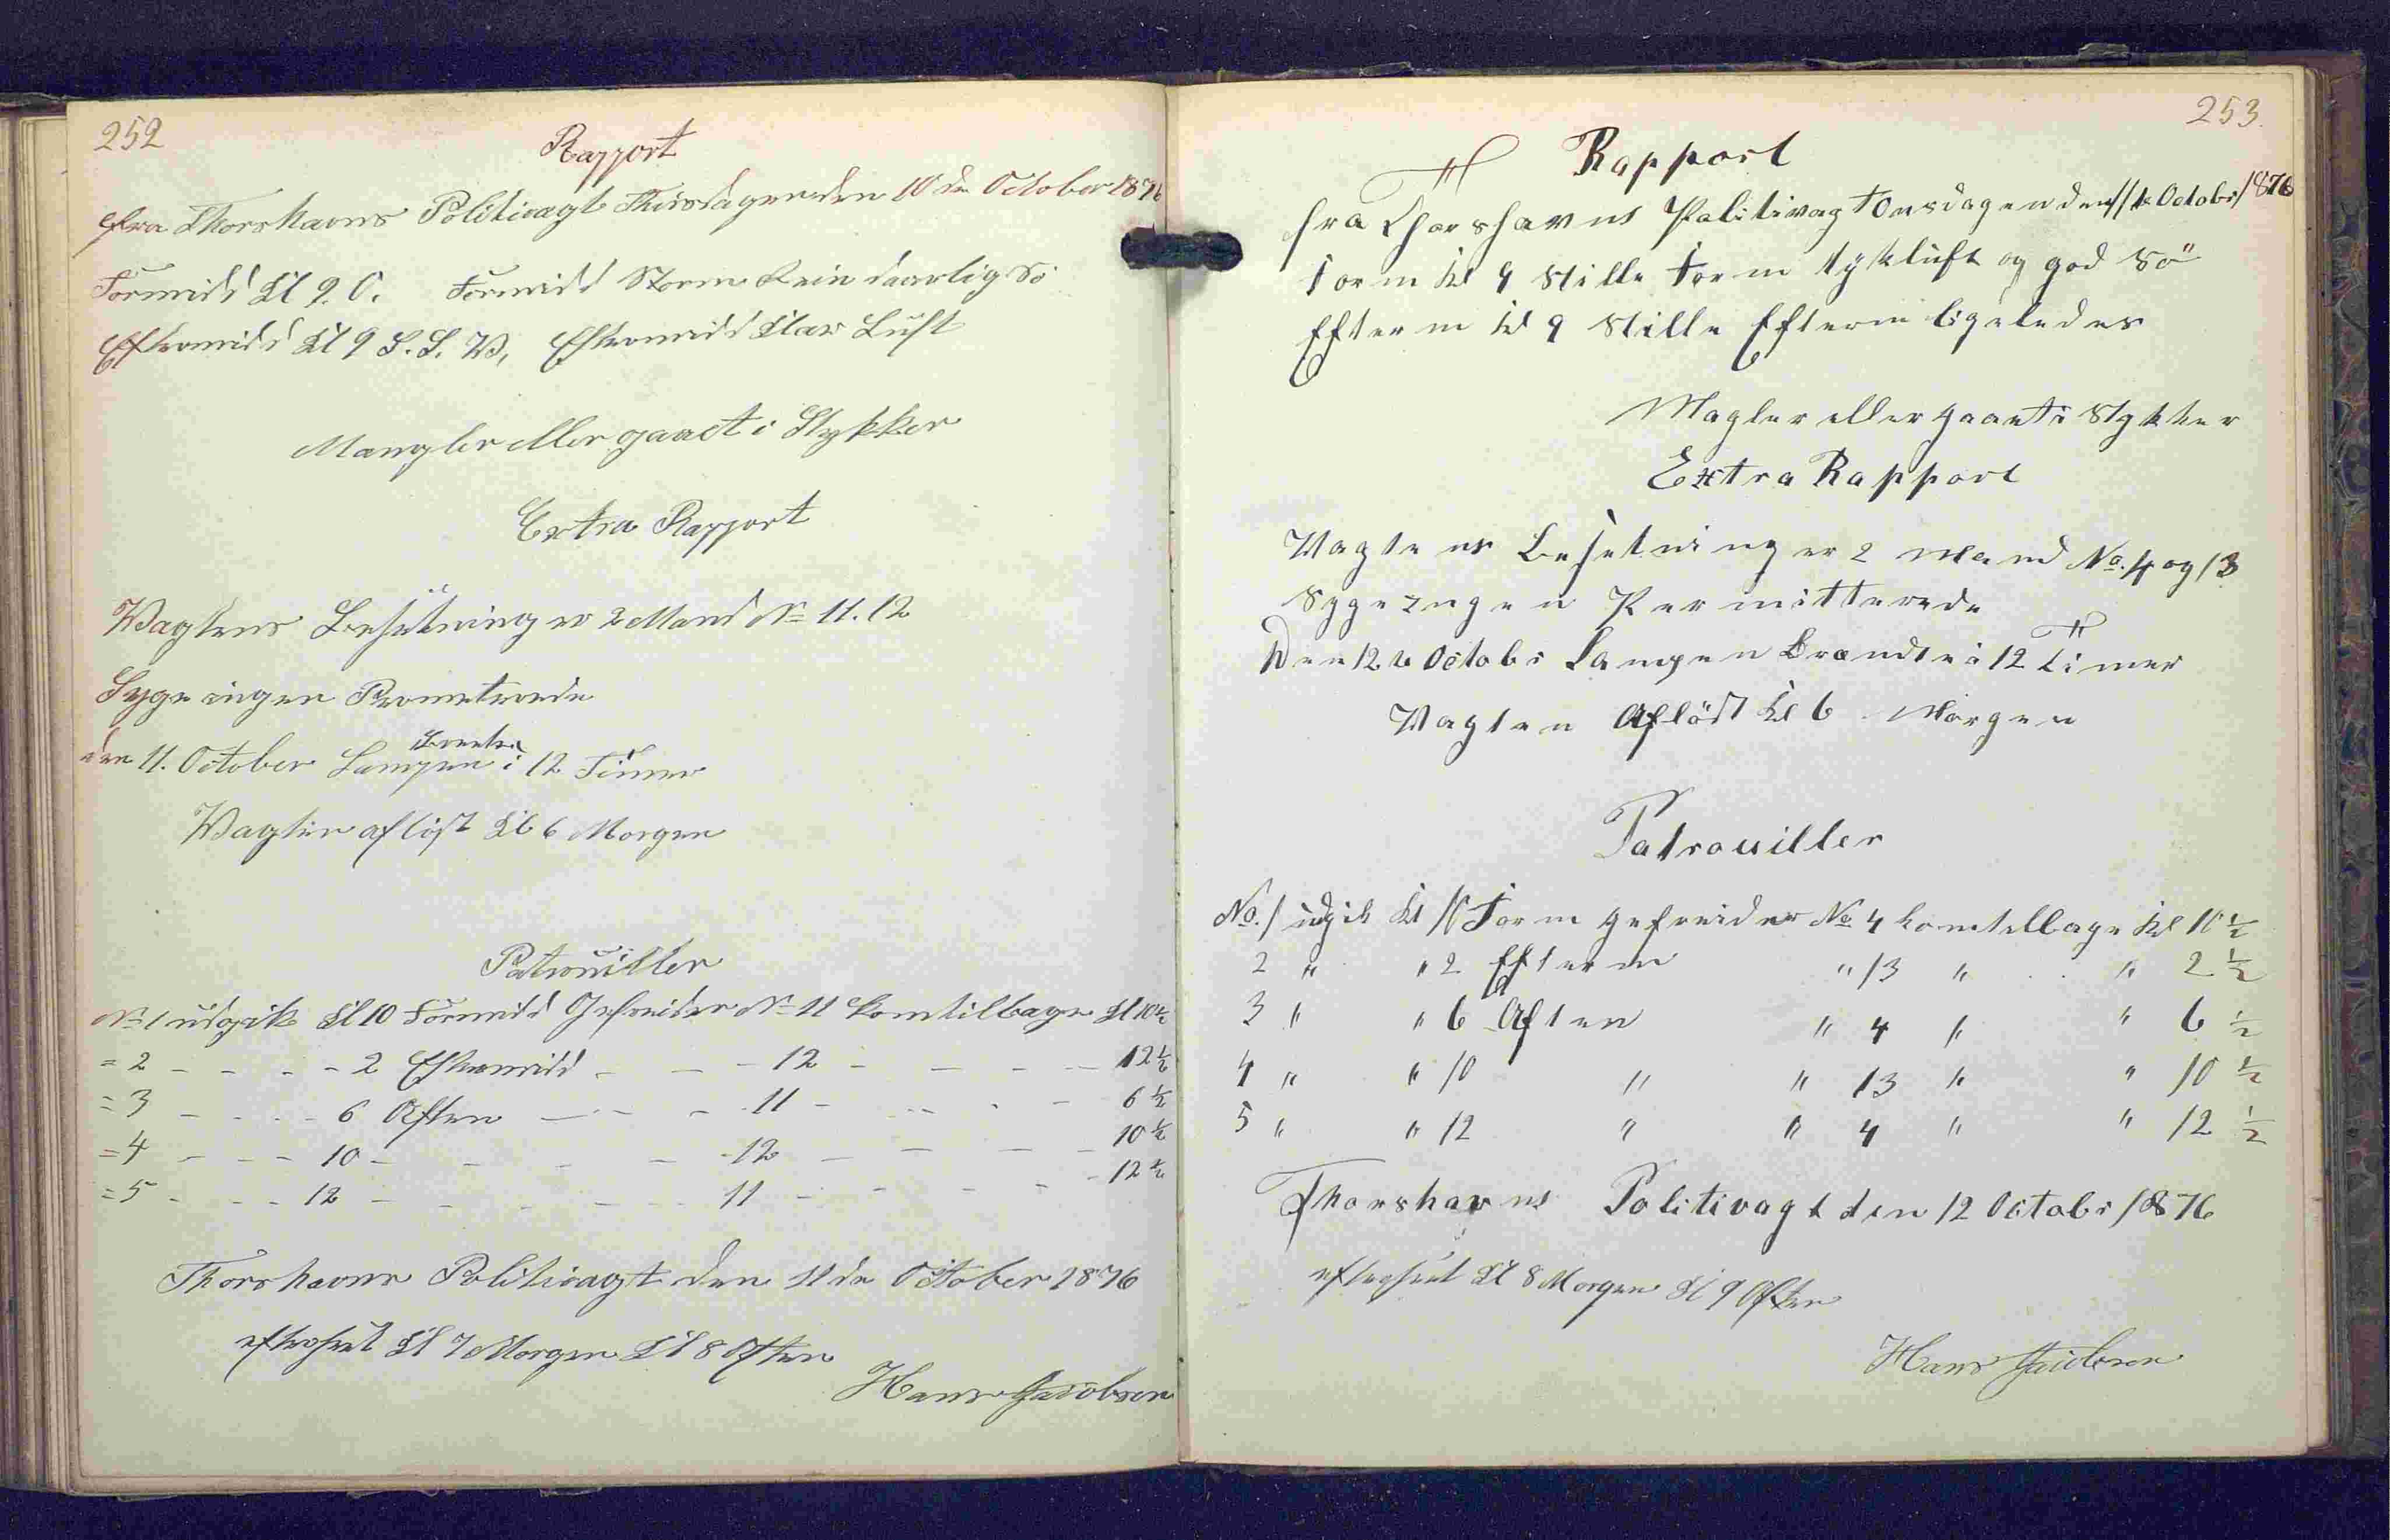 252
Rapport
fra Thorshavns Politivagt Thirsdagen den 10de October 1876
Formidd Kl 9. O. Formidd Storm Rein daarlig Sö
Eftermidd Kl 9 S. S. V, Eftermidd Klar Luft
Mangler eller gaaet i Stykker
Extra Rapport
Wagtens Besetning er 2 Mand No 11. 12
Syge ingen Prometerede
den 11. October Lampen brendte i 12 Timer
Wagten aflöst Kl 6 Morgen
Patrouiller
No 1 udgik Kl 10 Formidd Gefreider No 11 kom tilbage Kl 10 1/2
= 2 - - - - 2 Eftermidd - - - 12 - - - - 12 1/2
= 3 - - - - 6 Aften - - - 11 - - - - 6 1/2
= 4 - - - - 10 - - - - 12 - - - - 10 1/2
= 5 - - - - 12 - - - - 11 - - - - 12 1/2
Thorshavns Politivagt den 11de October 1876
efterseet Kl 7 Morgen Kl 8 Aften
Hans Jacobsen
253.
Rapport
fra Thorshavns Politivagt Onsdagen den 11te Octobr 1876
Form Kl 9 Stille Form tykluft og god Sö
Efterm Kl 9 Stille Efterm ligeledes
Magler eller gaaet i Stykker
Extra Rapport
Vagtens Besetning er 2 Mand No. 4 og 13
Syge Ingen Permitterede
Den 12te Octobr Lampen Brændte i 12 Timer
Vagten Aflöst Kl 6 Morgen
Patrouiller
No. 1 udgik Kl 10 Form gefreider No 4 kom tilbage Kl 10 1/2
2 " " 2 Efterm " 13 " " 2 1/2
3 " " 6 Aften " 4 " " 6 1/2
4 " " 10 " " 13 " " 10 1/2
5 " " 12 " " 4 " " 12 1/2
Thorshavns Politivagt den 12 Octobr 1876
efterseet Kl 8 Morgen Kl 9 Aften
Hans Jacobsen